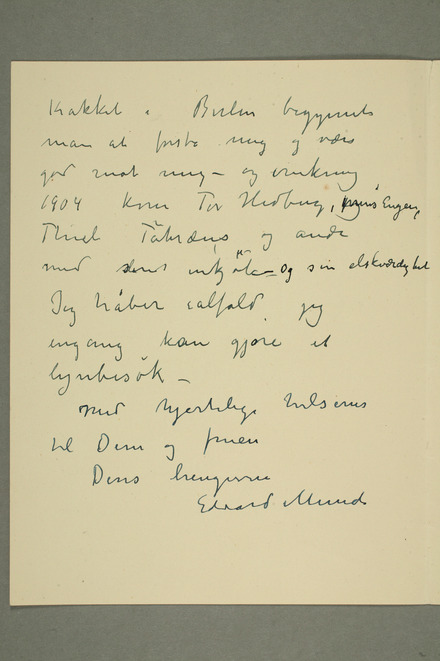 i Berlin begynnte
man at forstå mig og være
god mot mig – og omkring
1904 kom Tor Hedberg, prins Eugen,
Thiel Tåhræus og andre
med deres innkjöb – og sin elskværdighet
Jeg håber ialfald jeg
engang kan gjøre et
lynbesök –
med hjertelige hilsener
til Dem og fruen
Deres hengivne
Edvard Munch